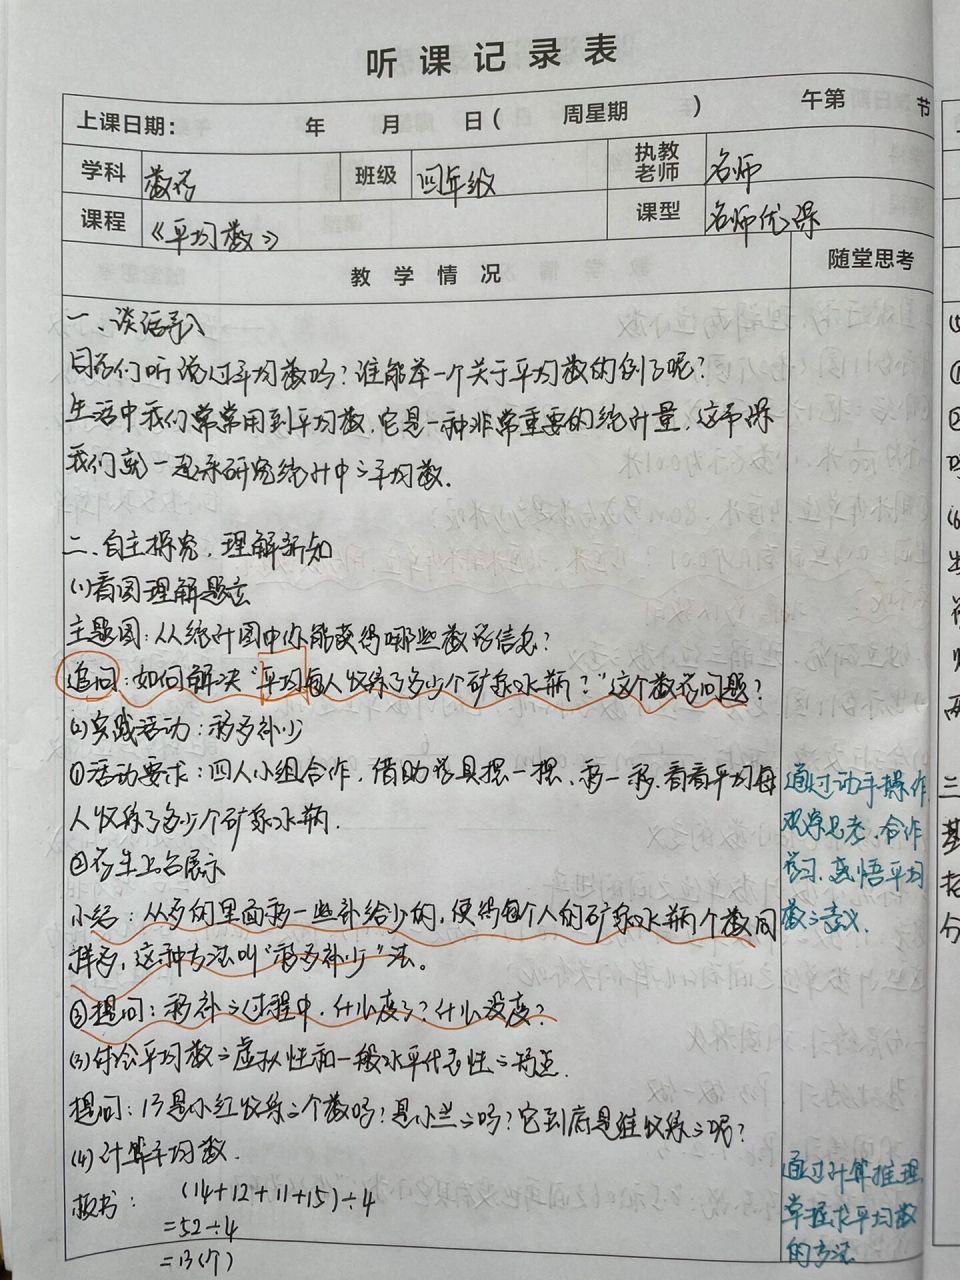 听课记录表
上课日期： 年 月 日（ 周星期 ） 午第 节
学科 数学 班级 四年级 执教老师 名师
课程 《平均数》 课型 名师优课
教学情况 随堂思考
一、谈话导入
同学们听说过平均数吗？谁能举一个关于平均数的例子呢？
生活中我们常常用到平均数，它是一种非常重要的统计量，这节课
我们就一起来研究统计中之平均数.
二、自主探究，理解新知
(1)看图理解题意
主题图：从统计图中你能获得哪些数学信息？
追问：如何解决“平均每人收集了多少个矿泉水瓶？”这个数学问题？
(2)实践活动：移多补少
①活动要求：四人小组合作，借助学具摆一摆、移一移，看看平均每
人收集了多少个矿泉水瓶.
②学生上台展示
小结：从多的里面移一些补给少的，使得每个人的矿泉水瓶个数同
样多，这种方法叫“移多补少”法。
③提问：移补之过程中，什么变了？什么没变？
(3)体会平均数之虚拟性和一般水平代表性之特点.
提问：13是小红收集之个数吗？是小兰之吗？它到底是谁收集之呢？
(4)计算平均数.
板书： (14+12+11+15)÷4
=52÷4
=13(个)
通过动手操作，
观察思考，合作
学习，感悟平均
数之意义.
通过计算推理
掌握求平均数
的方法